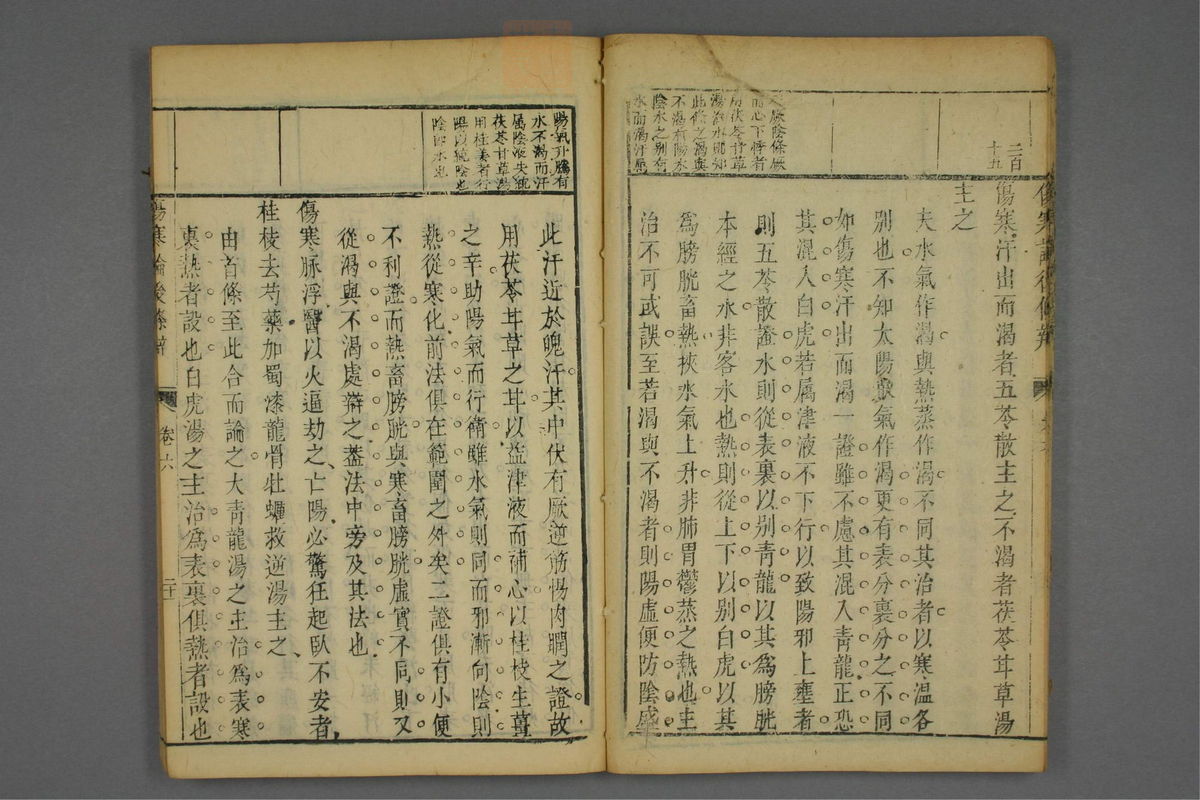 傷寒論後條辨
二百
十五
傷寒汗出而渴者五苓散主之不渴者茯苓甘草湯
主之
夫水氣作渴與熱蒸作渴不同其治者以寒溫各
別也不知太陽水氣作渴更有表分裏分之不同
如傷寒汗出而渴一證雖不慮其混入青龍正恐
其混入白虎若属津液不下行以致陽邪上壅者
則五苓散證水則從表裏以别青龍以其爲膀胱
本經之水非客水也熱則從上下以别白虎以其
爲膀胱畜熱挾水氣上升非肺胃鬱蒸之熱也主
治不可或誤至若渴與不渴者則陽虛便防陰盛
厥陰條厥
而心下悸者
用茯苓甘草
湯治水即知
此條之渴與
不渴有陽水
陰水之别有
水而渴汗屬
陽氣升騰有
水不渴而汗
属陰液失統
茯苓甘草湯
用桂姜者行
陽以統陰也
陰即水也
此汗近於魄汗其中伏有厥逆筋惕肉瞤之證故
用茯苓甘草之甘以益津液而補心以桂枝生薑
之辛助陽氣而行衛雖水氣則同而邪漸向陰則
熱從寒化前法俱在範圍之外矣二證俱有小便
不利證而熱畜膀胱與寒畜膀胱虛實不同則又
從渴與不渴處辯之葢法中旁及其法也
傷寒脉浮醫以火逼劫之亡陽必驚狂起臥不安者
桂枝去芍藥加蜀漆龍骨牡蠣救逆湯主之
由首條至此合而論之大青龍湯之主治爲表寒
裏熱者設也白虎湯之主治爲表裏俱熱者設也
傷寒論後條辨
卷六
二十